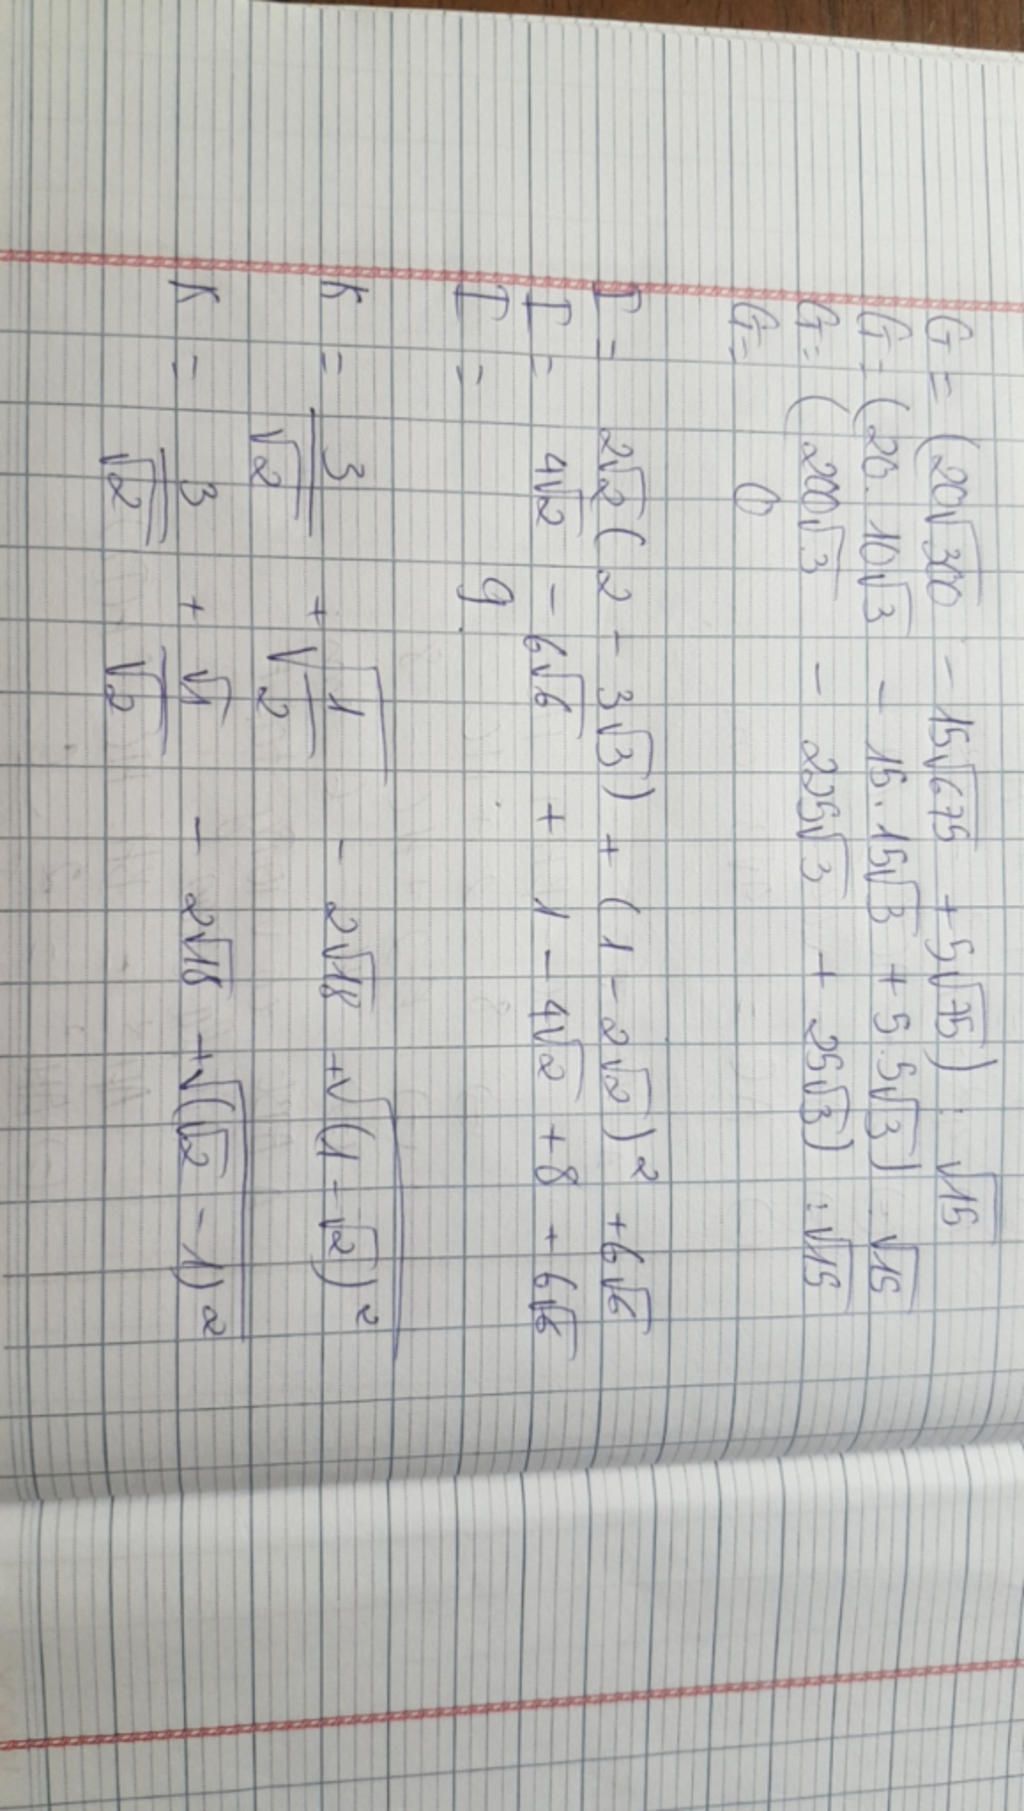 G = (20√300 - 15√675 + 5√75) : √15
G = (20.10√3 - 15.15√3 + 5.5√3) : √15
G = (200√3 - 225√3 + 25√3) : √15
G = 0
I = 2√2(2 - 3√3) + (1 - 2√2)² + 6√6
I = 4√2 - 6√6 + 1 - 4√2 + 8 + 6√6
I = 9.
K = 3/√2 + √(1/2) - 2√18 + √((1 - √2)²)
K = 3/√2 + √1/√2 - 2√18 + √((√2 - 1)²)